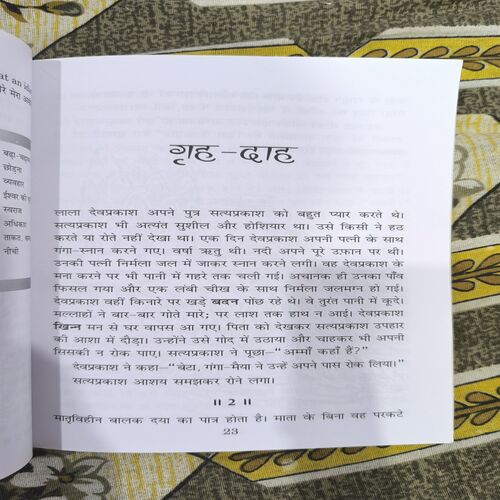 at an
रे मेरा
बढ़ा-चढ़ा
छोड़ना
व्यवहार
ईश्वर की
स्वराज
अधिकता
ताकत,
नीची
गृह-दाह
लाला देवप्रकाश अपने पुत्र सत्यप्रकाश को बहुत प्यार करते थे।
सत्यप्रकाश भी अत्यंत सुशील और होशियार था। उसे किसी ने हठ
करते या रोते नहीं देखा था। एक दिन देवप्रकाश अपनी पत्नी के साथ
गंगा-स्नान करने गए। वर्षा ऋतु थी। नदी अपने पूरे उफान पर थी।
उनकी पत्नी निर्मला जल में जाकर स्नान करने लगी। वह देवप्रकाश के
मना करने पर भी पानी में गहरे तक चली गई। अचानक ही उनका पाँव
फिसल गया और एक लंबी चीख के साथ निर्मला जलमग्न हो गई।
देवप्रकाश वहीं किनारे पर खड़े बदन पोंछ रहे थे। वे तुरंत पानी में कूदे।
मल्लाहों ने बार-बार गोते मारे; पर लाश तक हाथ न आई। देवप्रकाश
खिन्न मन से घर वापस आ गए। पिता को देखकर सत्यप्रकाश उपहार
की आशा में दौड़ा। उन्होंने उसे गोद में उठाया और चाहकर भी अपनी
सिसकी न रोक पाए। सत्यप्रकाश ने पूछा—“अम्माँ कहाँ हैं?”
देवप्रकाश ने कहा—“बेटा, गंगा-मैया ने उन्हें अपने पास रोक लिया।”
सत्यप्रकाश आशय समझकर रोने लगा।
॥ 2 ॥
मातृविहीन बालक दया का पात्र होता है। माता के बिना वह परकटे
23